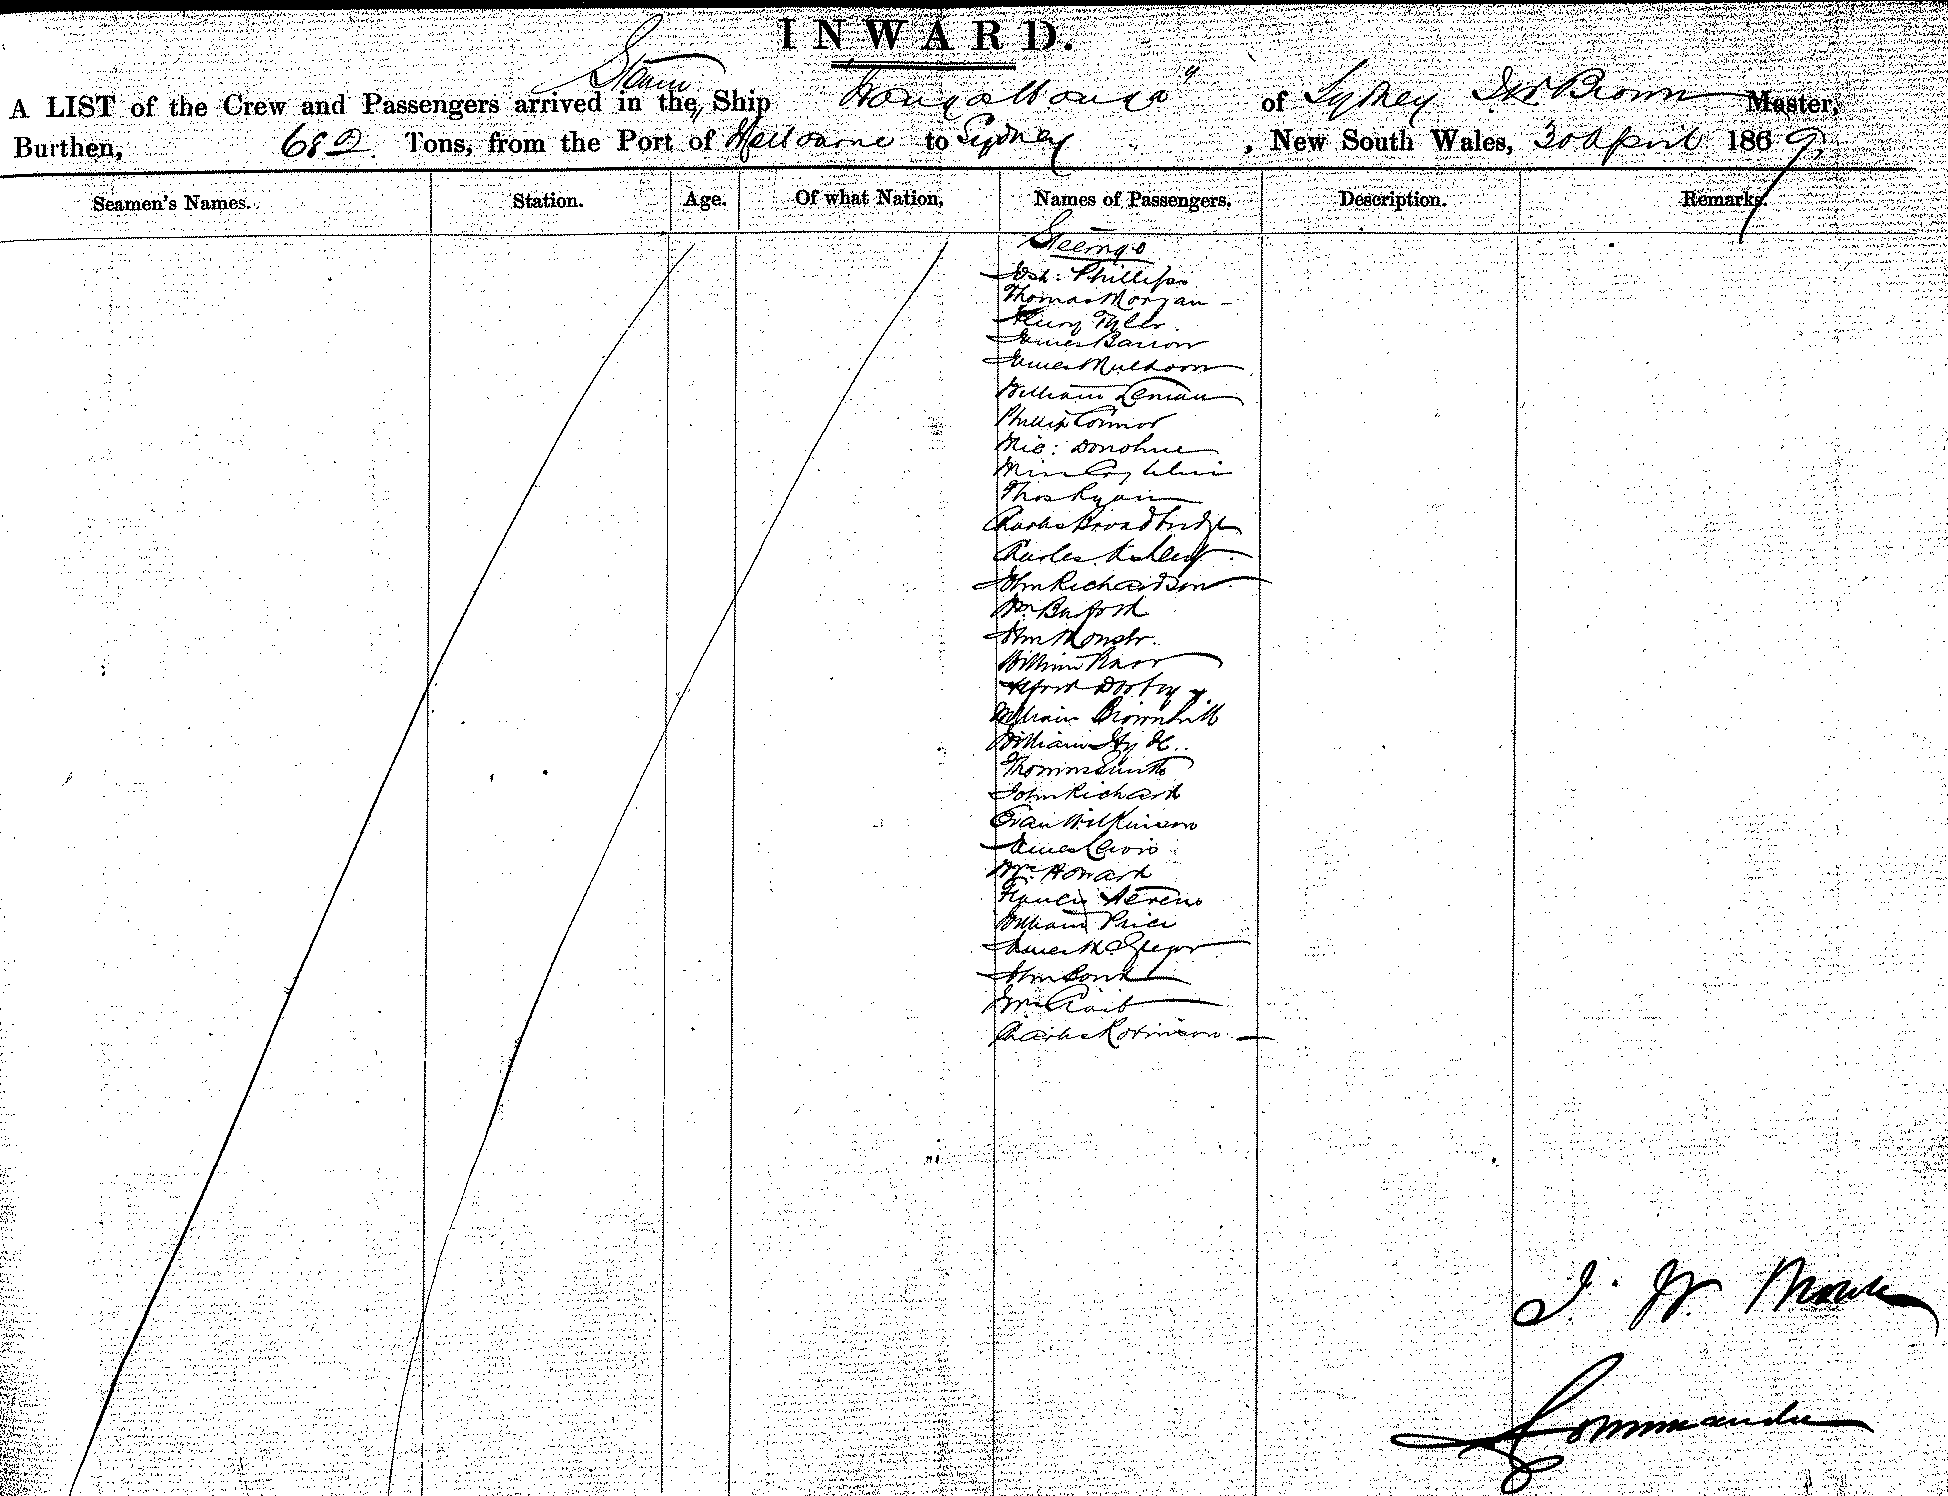 INWARD.
Steam
A LIST of the Crew and Passengers arrived in the Ship "Wonga Wonga" of Sydney Brown Master,
Burthen, 682 Tons, from the Port of Melbourne to Sydney, New South Wales, 30 April 1869
Seamen's Names. Station. Age. Of what Nation. Names of Passengers. Description. Remarks.
Steerage
Josh: Phillips
Thomas Morgan
Henry Tyler
James Barrow
James Muldoon
William Leman
Phillip Connor
Mic: Donohue
Miss Coghlin
Thos Ryan
Charles Broadbridge
Charles
John Richardson
Wm Buford
John
William
Alfred Dorby
William Brownhill
William Hyde
Thomas Smith
John Richard
Evan Wilkinson
James Lewis
Wm Howard
Francis
William Price
James McGregor
John Bond
Charles Robinson
J. W. Brown
Commander